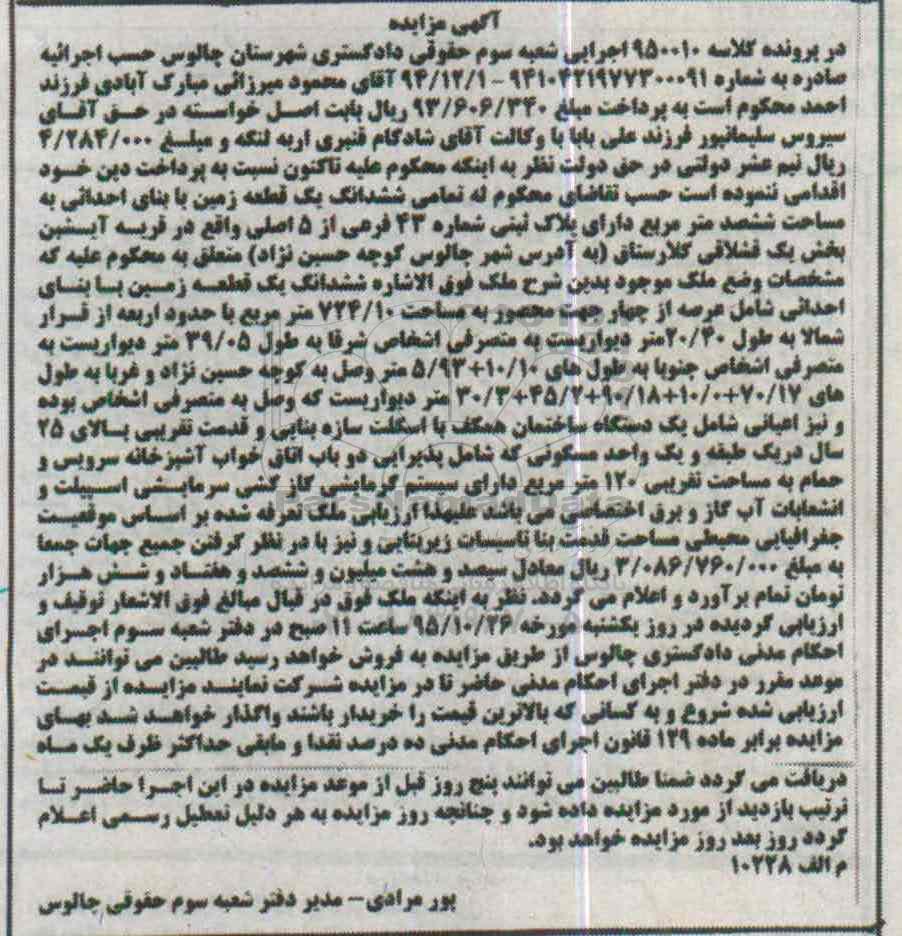 آگهی مزایده
در پرونده کلاسه ۹۵۰۰۱۰ اجرایی شعبه سوم حقوقی دادگستری شهرستان چالوس حسب اجرائیه
صادره به شماره ۹۴۱۰۴۲۱۹۷۷۳۰۰۰۹۱ - ۹۴/۱۲/۱ آقای محمود میرزائی مبارک آبادی فرزند
احمد محکوم است به پرداخت مبلغ ۹۳/۶۰۶/۳۴۰ ریال بابت اصل خواسته در حق آقای
سیروس سلیمانپور فرزند علی بابا با وکالت آقای شادکام قنبری اربه لنگه و مبلغ ۴/۲۸۴/۰۰۰
ریال نیم عشر دولتی در حق دولت نظر به اینکه محکوم علیه تاکنون نسبت به پرداخت دین خود
اقدامی ننموده است حسب تقاضای محکوم له تمامی ششدانگ یک قطعه زمین با بنای احداثی به
مساحت ششصد متر مربع دارای پلاک ثبتی شماره ۴۳ فرعی از ۵ اصلی واقع در قریه آیشبن
بخش یک قشلاقی کلارستاق (به آدرس شهر چالوس کوچه حسین نژاد) متعلق به محکوم علیه که
مشخصات وضع ملک موجود بدین شرح ملک فوق الاشاره ششدانگ یک قطعه زمین با بنای
احداثی شامل عرصه از چهار جهت محصور به مساحت ۷۲۴/۱۰ متر مربع با حدود اربعه از قرار
شمالا به طول ۲۰/۴۰متر دیواریست به متصرفی اشخاص شرقا به طول ۳۹/۰۵ متر دیواریست به
متصرفی اشخاص جنوبا به طول های ۱۰/۱۰+۵/۹۳ متر وصل به کوچه حسین نژاد و غربا به طول
های ۷۰/۱۷+۱۰/۰+۹۰/۱۸+۴۵/۲+۳۰/۳ متر دیواریست که وصل به متصرفی اشخاص بوده
و نیز اعیانی شامل یک دستگاه ساختمان همکف با اسکلت سازه بنایی و قدمت تقریبی بالای ۲۵
سال دریک طبقه و یک واحد مسکونی که شامل پذیرایی دو باب اتاق خواب آشپزخانه سرویس و
حمام به مساحت تقریبی ۱۲۰ متر مربع دارای سیستم گرمایشی گاز کشی سرمایشی اسپیلت و
انشعابات آب گاز و برق اختصاصی می باشد علیهذا ارزیابی ملک تعرفه شده بر اساس موقعیت
جغرافیایی محیطی مساحت قدمت بنا تاسیسات زیربنایی و نیز با در نظر گرفتن جمیع جهات جمعا
به مبلغ ۳/۰۸۶/۷۶۰/۰۰۰ ریال معادل سیصد و هشت میلیون و ششصد و هفتاد و شش هزار
تومان تمام برآورد و اعلام می گردد. نظر به اینکه ملک فوق در قبال مبالغ فوق الاشعار توقیف و
ارزیابی گردیده در روز یکشنبه مورخه ۹۵/۱۰/۲۶ ساعت ۱۱ صبح در دفتر شعبه سوم اجرای
احکام مدنی دادگستری چالوس از طریق مزایده به فروش خواهد رسید طالبین می توانند در
موعد مقرر در دفتر اجرای احکام مدنی حاضر تا در مزایده شرکت نمایند مزایده از قیمت
ارزیابی شده شروع و به کسانی که بالاترین قیمت را خریدار باشند واگذار خواهد شد بهای
مزایده برابر ماده ۱۲۹ قانون اجرای احکام مدنی ده درصد نقدا و مابقی حداکثر ظرف یک ماه
دریافت می گردد ضمنا طالبین می توانند پنج روز قبل از موعد مزایده در این اجرا حاضر تا
ترتیب بازدید از مورد مزایده داده شود و چنانچه روز مزایده به هر دلیل تعطیل رسمی اعلام
گردد روز بعد روز مزایده خواهد بود.
م الف ۱۰۲۲۸
پور مرادی- مدیر دفتر شعبه سوم حقوقی چالوس